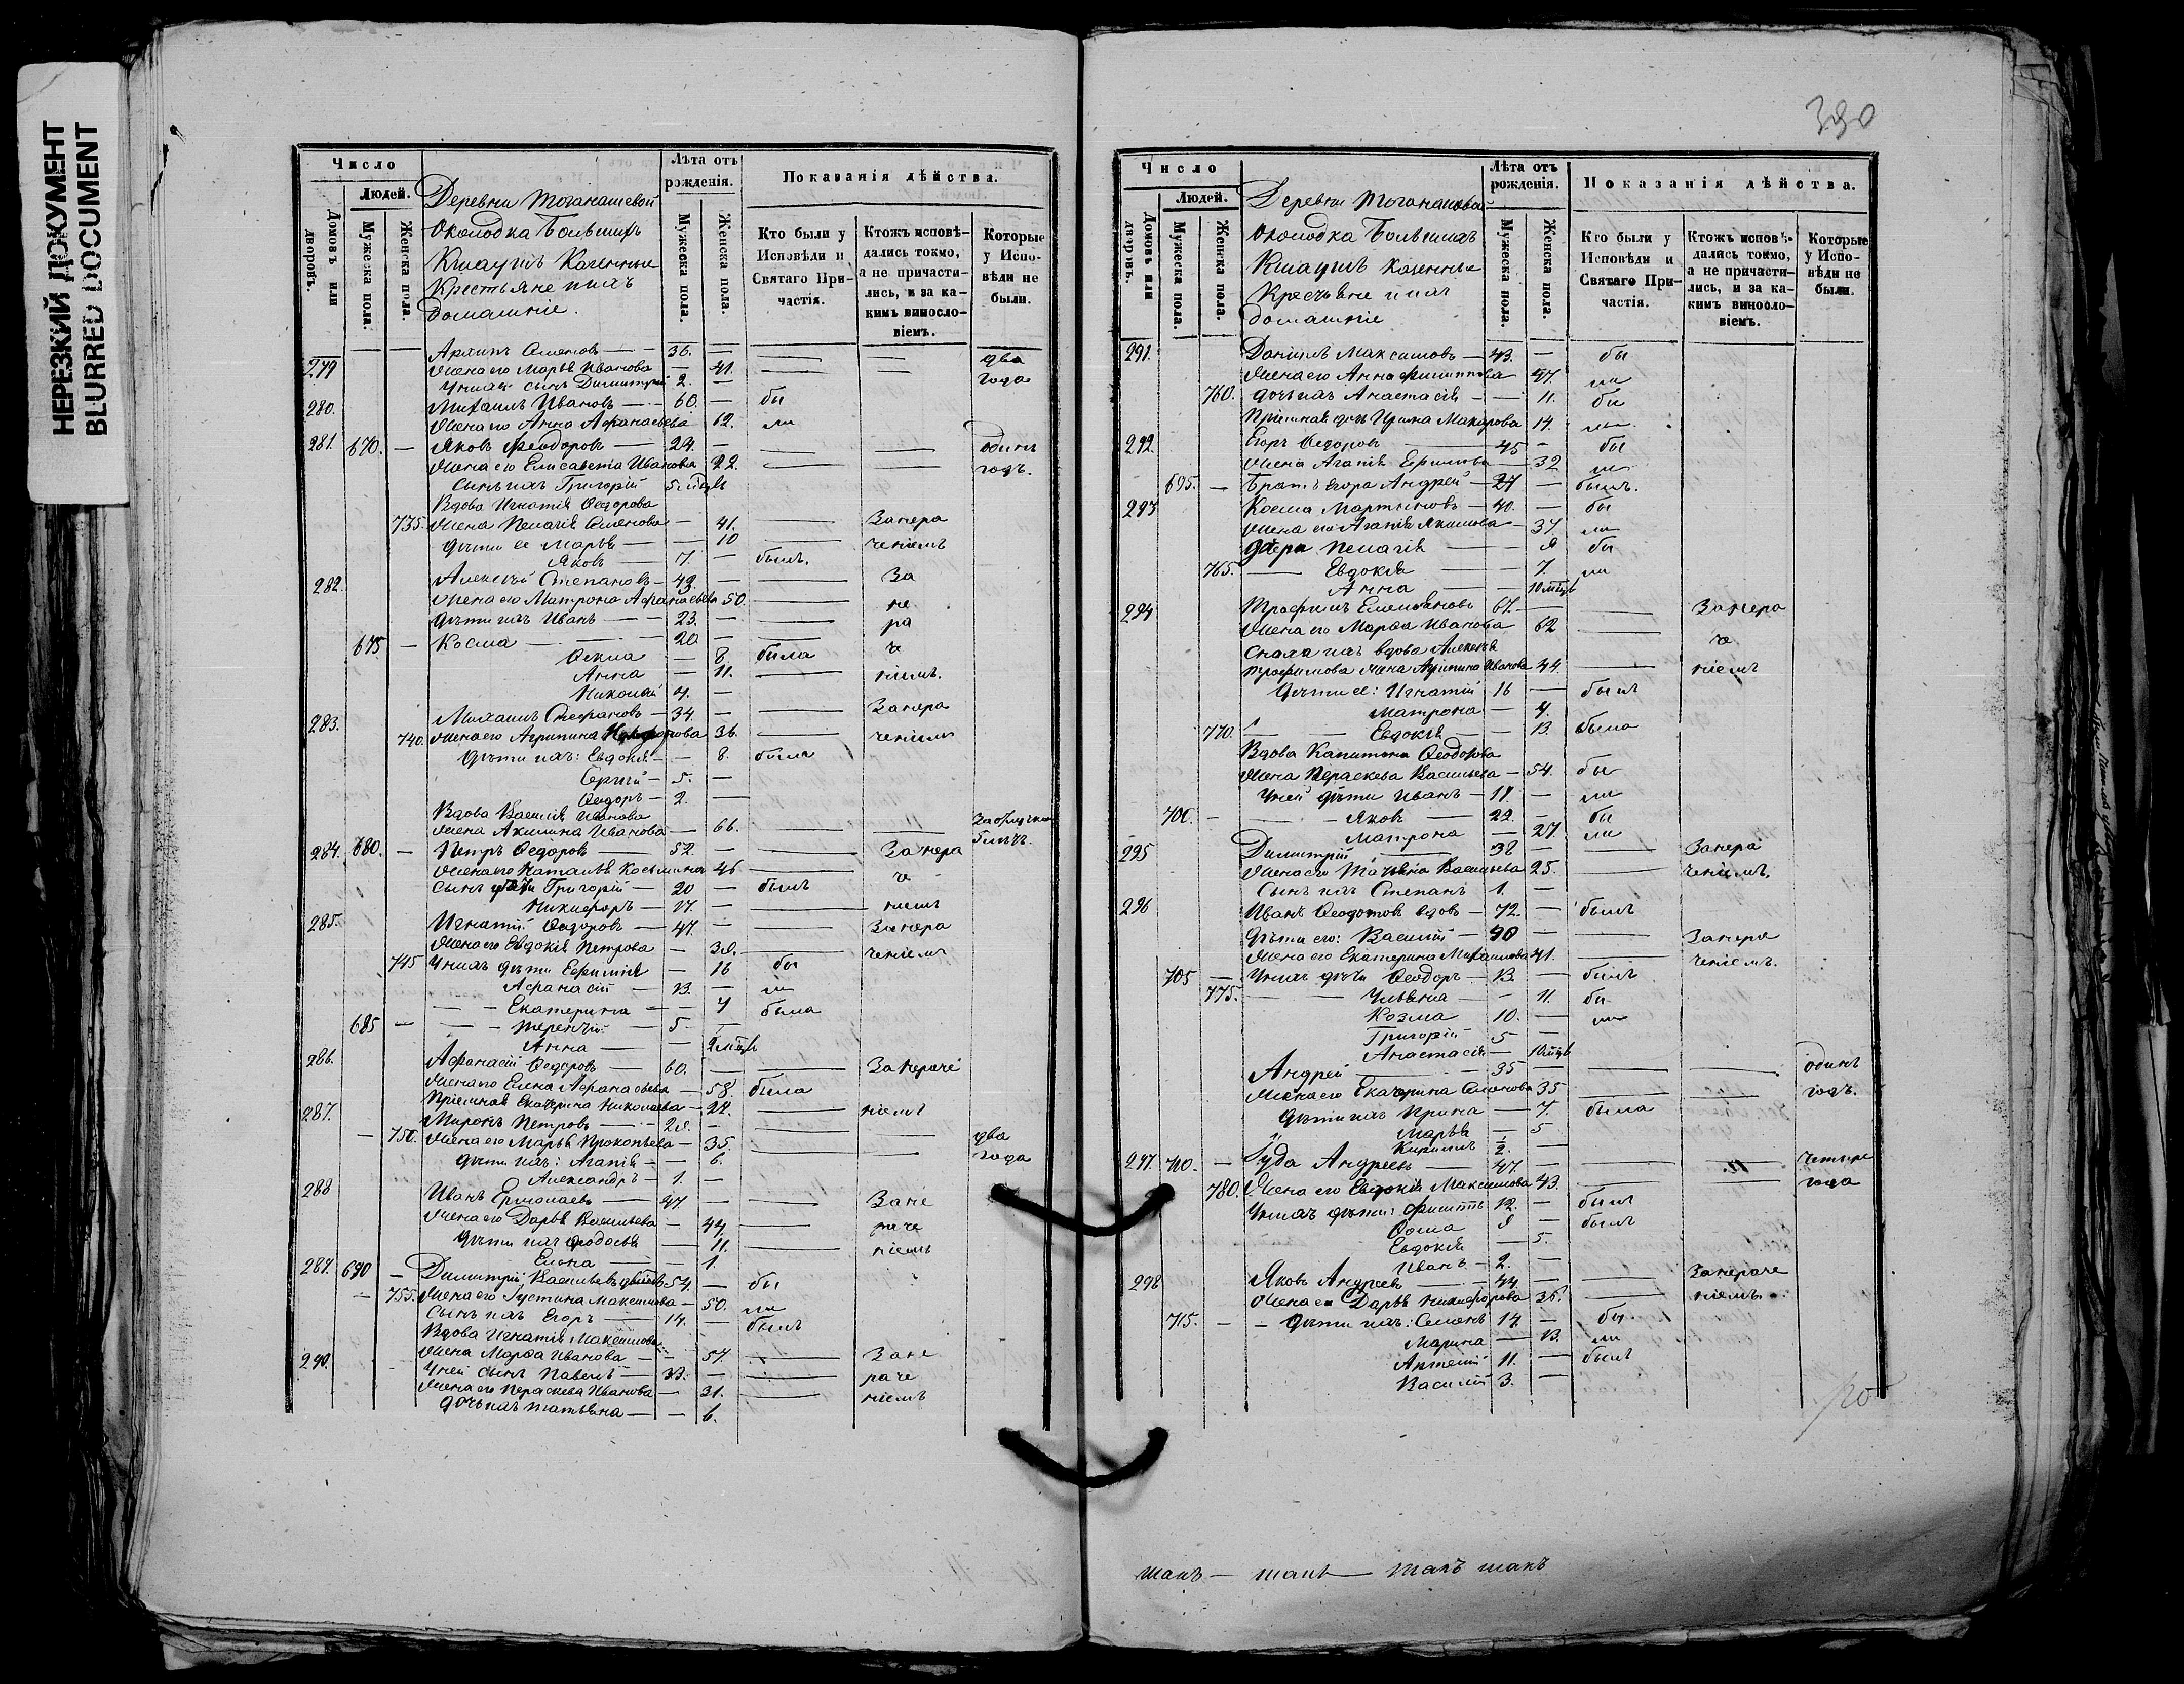 НЕРЕЗКИЙ ДОКУМЕНТ
BLURRED DOCUMENT
Число
Людей.
Домовъ или дворовъ.
Мужеска пола.
Женска пола.
Деревни Тоганашевой
Околодка Большихъ
Казенные
Крестьяне и ихъ
домашніе.
Лѣта отъ рожденія.
Мужеска пола.
Женска пола.
Показанія дѣйства.
Кто были у Исповѣди и Святаго Причастія.
Ктожъ исповѣдались токмо, а не причастились, и за какимъ винословіемъ.
Которые у Исповѣди не были.
279 Архипъ Семеновъ — 36. — два
Жена его Марья Иванова — 41. года
У нихъ сынъ Димитрій 2. —
280. Михаилъ Иванов — 60. — бы
Жена его Анна Афанасьева 62. ли
281. 670. — Яковъ Феодоровъ — 24. — одинъ
Жена его Елисавета Иванова 22. годъ.
Сынъ ихъ Григорій 5 мцвъ
Вдова Игнатія Федорова
735. Жена Пелагія Семенова — 41. За нера
Дѣти ее Марья — 10 ченіемъ
Яковъ — 7. — былъ.
282. Алексѣй Степановъ — 43. — За
Жена его Матрона Афанасьева 50. не
Дѣти ихъ Иванъ — 23. — ра
675 — Косма — 20 — че
Фекла — 8. была
Анна — 11. ніемъ.
Николай 4. —
283. Михаилъ Стефановъ — 34. — За нера
740. Жена его Агрипина 36. ченіемъ
Дѣти ихъ: Евдокія — 8. была
Сергій — 5. —
Федоръ — 2. —
Вдова Василія Иванова
Жена Акилина Иванова — 66.
284. 680. — Петръ Федоровъ — 52. — За нера
Жена его Наталья Косьмина 46 че
Сынъ Григорій — 20 — былъ
Никифоръ — 17 — ніемъ
285. Игнатій Федоровъ — 47. — За нера
Жена его Евдокія Петрова — 38. ченіемъ
745 У нихъ дѣти Ефимія — 16 бы
Афанасій — 13. — ли
— Екатерина — 7 была
685 — Терентій — 5. —
Анна — 2 мцвъ
286. Афанасій Федоровъ — 60. — За нераче
Жена его Елена Афанасьева — 58. была
Пріемная Екатерина Николаева — 22. ніемъ
287. Миронъ Петровъ — 28. —
750. Жена его Марья Прокопьева — 35. два
Дѣти ихъ: Агапія — 6. года
Александръ — 1. —
288 Иванъ Ермолаевъ — 47 — За не
Жена его Дарья Васильева — 44. раче
Дѣти ихъ Федосья — 11. ніемъ
Елена — 1.
289. 690 — Димитрій Васильевъ 54. — бы
755. Жена его Густина Максимова — 50. ли
Сынъ ихъ Егоръ — 14. — былъ
Вдова Игнатія Максимова
290. Жена Марфа Иванова — 57. За не
У ней сынъ Павелъ — 33. — раче
Жена его Параскева Иванова — 31. ніемъ
Дочь ихъ Татьяна — 6.
390
Число
Людей.
Домовъ или дворовъ.
Мужеска пола.
Женска пола.
Деревни Тоганашевой
Околодка Большихъ
Казенные
Крестьяне и ихъ
домашніе
Лѣта отъ рожденія.
Мужеска пола.
Женска пола.
Показанія дѣйства.
Кто были у Исповѣди и Святаго Причастія.
Ктожъ исповѣдались токмо, а не причастились, и за какимъ винословіемъ.
Которые у Исповѣди не были.
291. Даніилъ Максимовъ — 43. — бы
Жена его Анна Филиппова 47. ли
760. Дочь ихъ Анастасія — 11. бы
Пріемная дочь Ирина Макарова 14. ли
292. Егоръ Федоровъ 45 — бы
Жена Агапія Ефимова — 32 ли
695. — Братъ Егора Андрей — 27 — былъ.
293 Косма Мартыновъ — 40. — бы
Жена его Агапія Якимова — 37 ли
Дочери Пелагія — 9 бы
765. — Евдокія — 7. ли
Анна — 10 мцвъ
294 Трофимъ Емельяновъ 67. — За нера
Жена его Марфа Иванова 62 че
Сноха ихъ вдова Алексѣя
Трофимова жена Агрипина Иванова 44. ніемъ
Дѣти ее: Игнатій 16 — былъ
Матрона — 4.
770. — Евдокія — 13. была
Вдова Капитона Феодорова
Жена Параскева Васильева — 54. бы
У ней дѣти Иванъ — 18. — ли
700. — Яковъ — 22. — бы
Матрона — 27. ли
295 Димитрій 38 — За нера
Жена его Татьяна Васильева 25. ченіемъ.
Сынъ ихъ Степанъ 1. —
296 Иванъ Феодотовъ вдовъ — 72. — былъ
Дѣти его: Василій — 40 — За нера
Жена его Екатерина Михаилова 41. ченіемъ.
705 — У нихъ дѣти Феодоръ — 13. — былъ
775. — Ульяна — 11. бы
Козма 10. — ли
Григорій 5 —
Анастасія — 10 мцвъ
Андрей — 35 — одинъ
Жена его Екатерина Семенова 35 годъ.
Дѣти ихъ Ирина — 7. была
Марья — 5
Кириллъ 2. —
297 710. — Іуда Андреевъ — 47. — четыре
780. Жена его Евдокія Максимова 43. года
У нихъ дѣти: Филиппъ 12. — былъ
Фома 9 — былъ
Евдокія — 5.
Иванъ — 2. —
298 Яковъ Андреевъ — 44. — За нераче
Жена его Дарья Никифорова 36. ніемъ.
715. — Дѣти ихъ: Семенъ 14. — бы
Марина — 13. ли
Артемій 11. — былъ
Василій 3. —